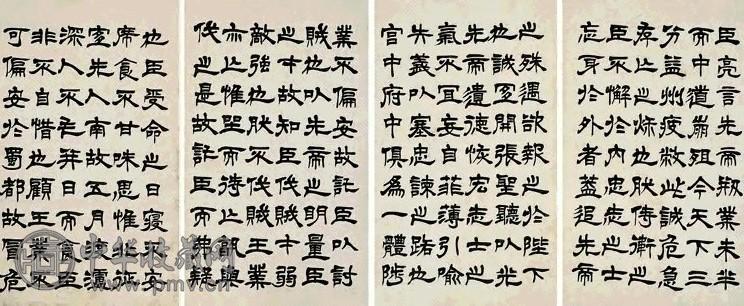 臣亮言先帝創業未半
而中道崩殂今天下三
分益州疲敝此誠危急
存亡之秋也然侍衛之
臣不懈於内忠志之士
忘身於外者蓋追先帝
之殊遇欲報之於陛下
也誠宜開張聖聽以光
先帝遺德恢宏志士之
氣不宜妄自菲薄引喻
失義以塞忠諫之路也
宮中府中俱為一體陟
業不偏安故託臣以討
賊也以先帝之明量臣
之才故知臣伐賊才弱
敵強也然不伐賊王業
亦亡惟坐而待亡孰與
伐之是故託臣而弗疑
也臣受命之日寢不安
席食不甘味思惟北征
宜先入南故五月渡瀘
深入不毛并日而食臣
非不自惜也顧王業不
可偏安於蜀都故冒危
中华收藏网
www.pmv.cn